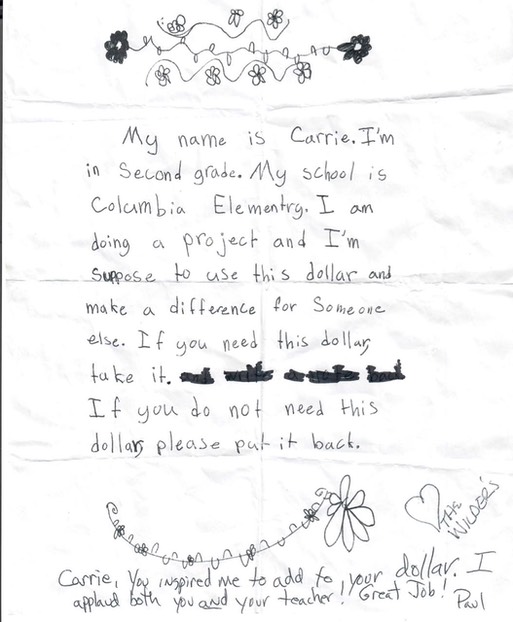 My name is Carrie. I'm
in Second grade. My school is
Columbia Elementry. I am
doing a project and I'm
suppose to use this dollar and
make a difference for Someone
else. If you need this dollar,
take it.
If you do not need this
dollar, please put it back.
THE
WILDER'S
Carrie, You inspired me to add to your dollar. I
applaud both you and your teacher!! Great Job!
Paul